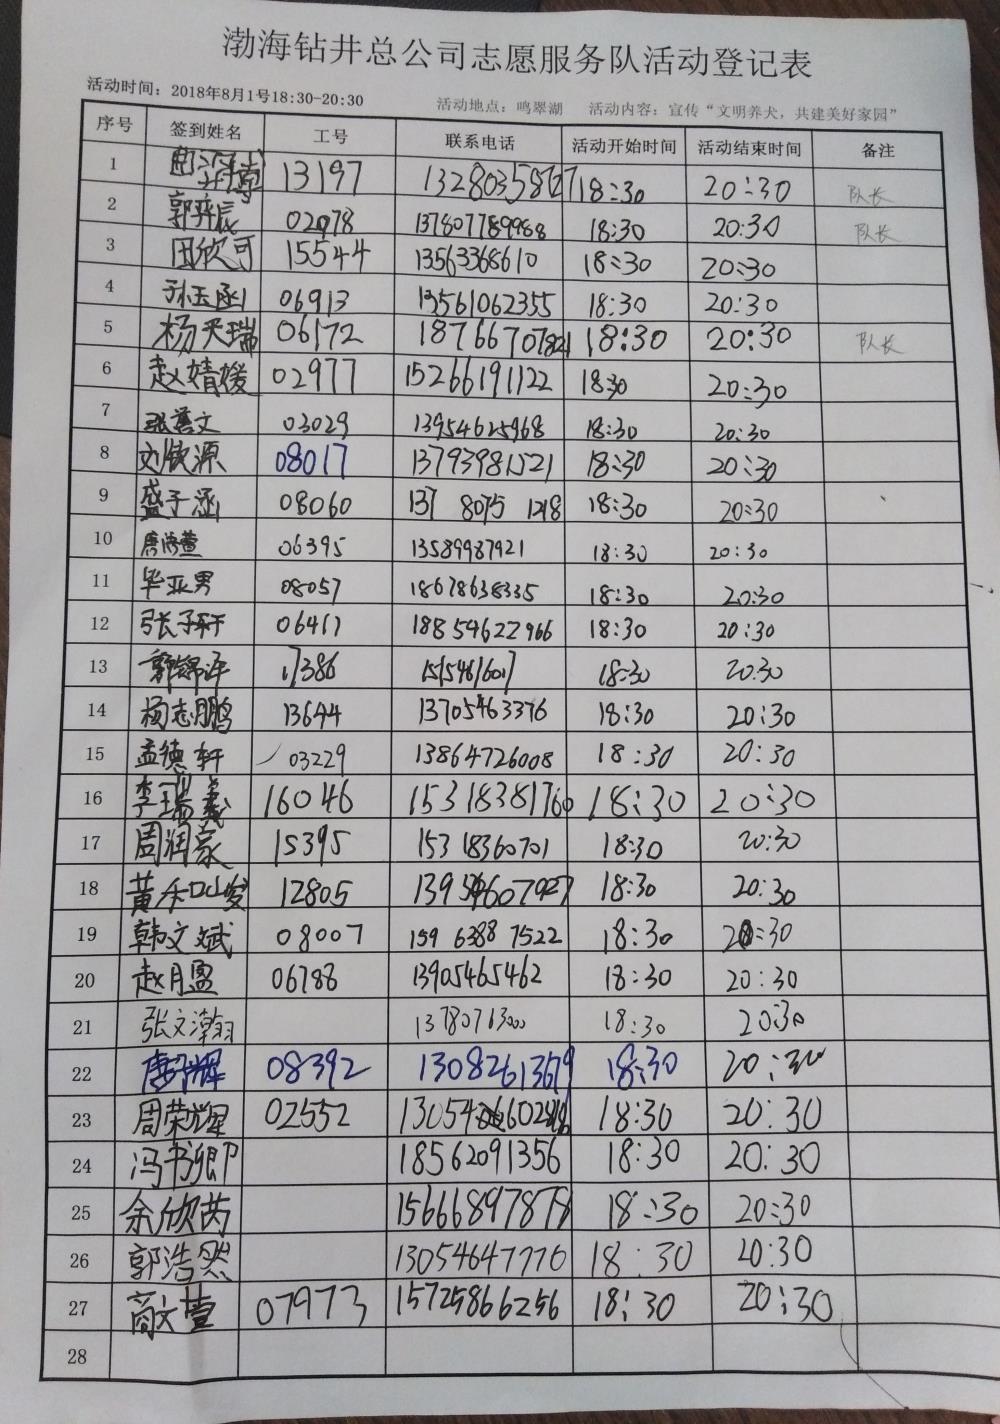 渤海钻井总公司志愿服务队活动登记表
活动时间：2018年8月1号18:30-20:30 活动地点：鸣翠湖 活动内容：宣传“文明养犬，共建美好家园”
序号 签到姓名 工号 联系电话 活动开始时间 活动结束时间 备注
1 13197 18:30 20:30 队长
2 郭弈辰 02978 18:30 20:30 队长
3 田欣可 15544 13563368610 18:30 20:30
4 孙玉函 06913 13561062355 18:30 20:30
5 杨天瑞 06172 18766707821 18:30 20:30 队长
6 赵婧媛 02977 15266191122 18:30 20:30
7 03029 13954625968 18:30 20:30
8 刘钦源 08017 13793981521 18:30 20:30
9 盛子涵 08060 137 8075 1218 18:30 20:30
10 06395 13589987921 18:30 20:30
11 毕亚男 08057 18678638335 18:30 20:30
12 张子轩 06417 18854622966 18:30 20:30
13 17386 18:30 20:30
14 杨志鹏 13644 13705463376 18:30 20:30
15 孟德轩 03229 13864726008 18:30 20:30
16 李瑞义 16046 15318381760 18:30 20:30
17 周润家 15395 15318360701 18:30 20:30
18 12805 18:30 20:30
19 韩文斌 08007 159 6388 7522 18:30 20:30
20 赵月盈 06788 13905465462 18:30 20:30
21 张文瀚 13780763000 18:30 20:30
22 08392 13082613679 18:30 20:30
23 周荣耀 02552 18:30 20:30
24 冯书卿 18562091356 18:30 20:30
25 余欣芮 15666897878 18:30 20:30
26 郭浩然 13054647770 18:30 20:30
27 商文萱 07973 15725866256 18:30 20:30
28